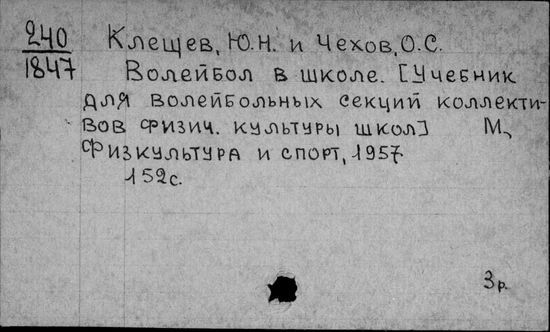 240 Клещев, Ю.Н. и Чехов, О.С.
1847 Волейбол в школе. [Учебник
для волейбольных секций коллекти-
вов физич. культуры школ] М.,
Физкультура и спорт, 1957
152с.
3р.